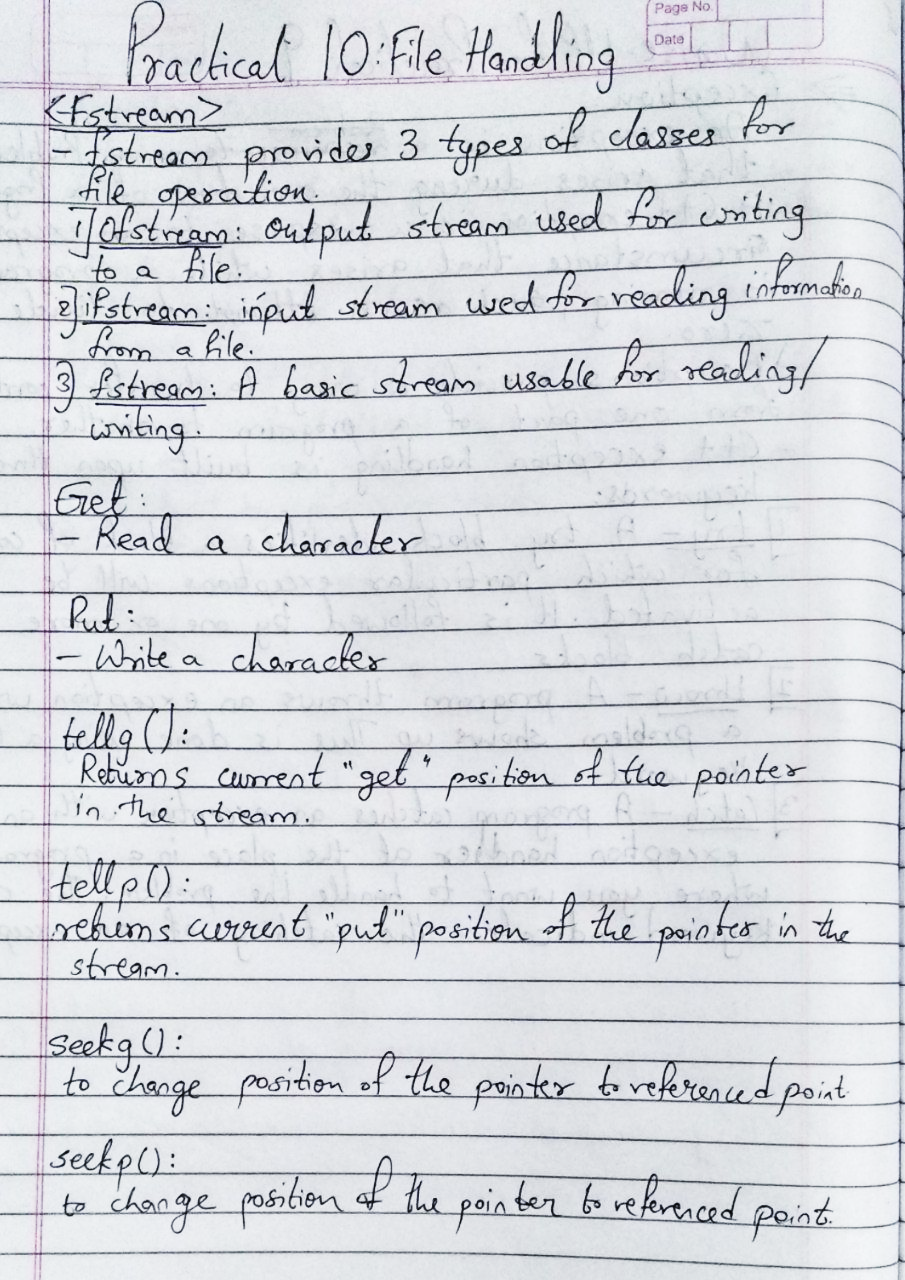 Page No.
Date
Practical 10: File Handling
<Fstream>
- fstream provides 3 types of classes for
file operation.
1] Ofstream: Output stream used for writing
to a file.
2] ifstream: input stream used for reading information
from a file.
3] fstream: A basic stream usable for reading/
writing.
Get:
- Read a character
Put:
- Write a character
tellg():
Returns current "get" position of the pointer
in the stream.
tellp():
returns current "put" position of the pointer in the
stream.
seekg():
to change position of the pointer to referenced point.
seekp():
to change position of the pointer to referenced point.